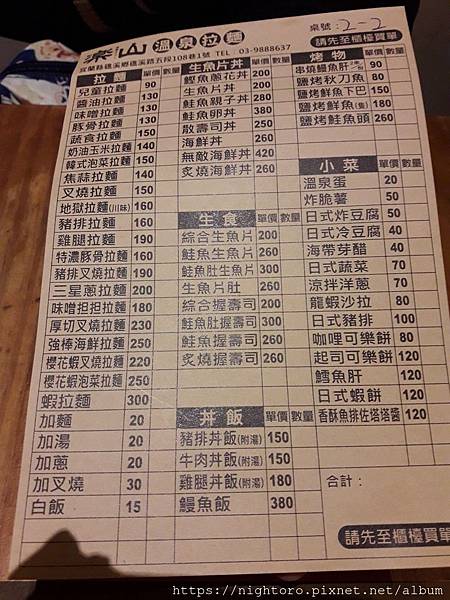 樂山溫泉拉麵
桌號：2-2
宜蘭縣礁溪鄉礁溪路五段108巷1號 TEL：03-9888637
請先至櫃檯買單
拉麵 單價 數量
兒童拉麵 90
醬油拉麵 130
味噌拉麵 130
豚骨拉麵 130
蔬食拉麵 150
奶油玉米拉麵 140
韓式泡菜拉麵 150
焦蒜拉麵 140
叉燒拉麵 150
地獄拉麵(川味) 160
豬排拉麵 160
雞腿拉麵 190
特濃豚骨拉麵 160
豬排叉燒拉麵 190
三星蔥拉麵 200
味噌担担拉麵 180
厚切叉燒拉麵 230
強棒海鮮拉麵 250
櫻花蝦叉燒拉麵 220
櫻花蝦泡菜拉麵 250
蝦拉麵 300
加麵 20
加湯 20
加蔥 20
加叉燒 30
白飯 15
生魚片丼 單價 數量
鰹魚蔥花丼 200
生魚片丼 200
鮭魚親子丼 280
鮭魚卵丼 380
散壽司丼 250
海鮮丼 260
無敵海鮮丼 420
炙燒海鮮丼 260
生食 單價 數量
綜合生魚片 200
鮭魚生魚片 260
鮭魚肚生魚片 300
生魚片肚 260
綜合握壽司 200
鮭魚肚握壽司 300
鮭魚握壽司 260
炙燒握壽司 260
丼飯 單價 數量
豬排丼飯(附湯) 150
牛肉丼飯(附湯) 150
雞腿丼飯(附湯) 180
鰻魚飯 380
烤物 單價 數量
串燒鰻魚肝 90
鹽烤秋刀魚 80
鹽烤鮮魚下巴 150
鹽烤鮮魚(隻) 180
鹽烤鮭魚頭 260
小菜 單價 數量
溫泉蛋 20
炸脆薯 50
日式炸豆腐 50
日式冷豆腐 40
海帶芽醋 40
日式蔬菜 70
涼拌洋蔥 70
龍蝦沙拉 80
日式豬排 100
咖哩可樂餅 80
起司可樂餅 120
鱈魚肝 120
日式蝦餅 120
香酥魚排佐塔塔醬 120
合計：
請先至櫃檯買單
https://nightoro.pixnet.net/album